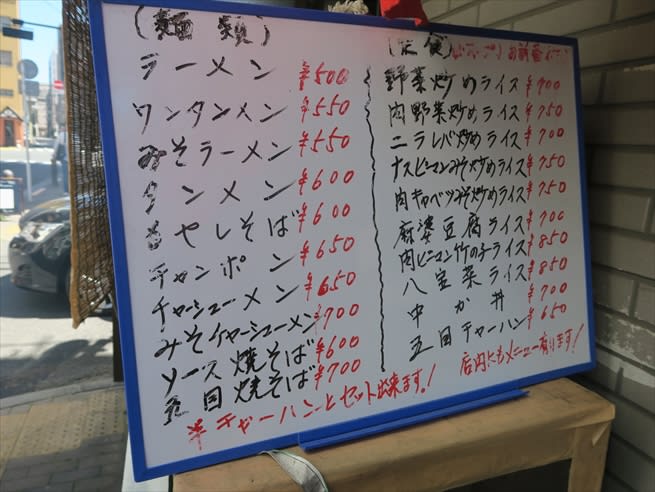 (麺類)
ラーメン ¥500
ワンタンメン ¥550
みそラーメン ¥550
タンメン ¥600
もやしそば ¥600
チャンポン ¥650
チャーシューメン ¥650
みそチャーシューメン ¥700
ソース焼そば ¥600
五目焼そば ¥700
*チャーハンとセット出来ます!
(定食)
野菜炒めライス ¥700
肉野菜炒めライス ¥750
ニラレバ炒めライス ¥700
ナスピーマンみそ炒めライス ¥750
肉キャベツみそ炒めライス ¥750
麻婆豆腐ライス ¥700
肉ピーマン竹の子ライス ¥850
八宝菜ライス ¥850
中か丼 ¥700
五目チャーハン ¥650
店内にもメニュー有ります!